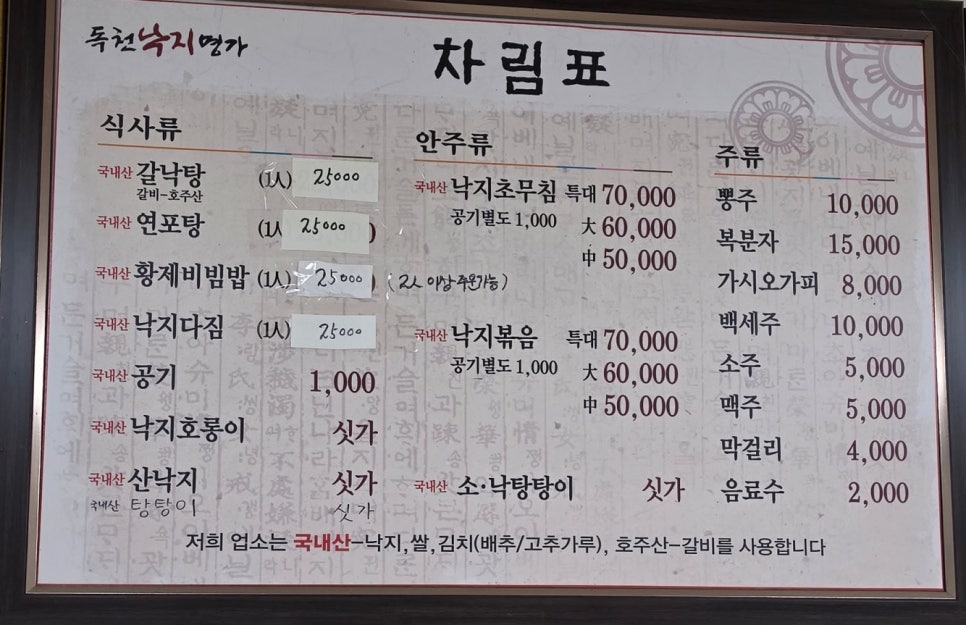 독천낙지명가
차림표
식사류
국내산 갈낙탕 (1人) 25000
갈비-호주산
국내산 연포탕 (1人 25000
국내산 황제비빔밥 (1人) 25000 (2人 이상 주문가능)
국내산 낙지다짐 (1人) 25000
국내산 공기 1,000
국내산 낙지호롱이 싯가
국내산 산낙지 싯가
국내산 탕탕이 싯가
안주류
국내산 낙지초무침 특대 70,000
공기별도 1,000 大 60,000
中 50,000
국내산 낙지볶음 특대 70,000
공기별도 1,000 大 60,000
中 50,000
국내산 소·낙탕탕이 싯가
주류
뽕주 10,000
복분자 15,000
가시오가피 8,000
백세주 10,000
소주 5,000
맥주 5,000
막걸리 4,000
음료수 2,000
저희 업소는 국내산-낙지,쌀,김치(배추/고추가루), 호주산-갈비를 사용합니다